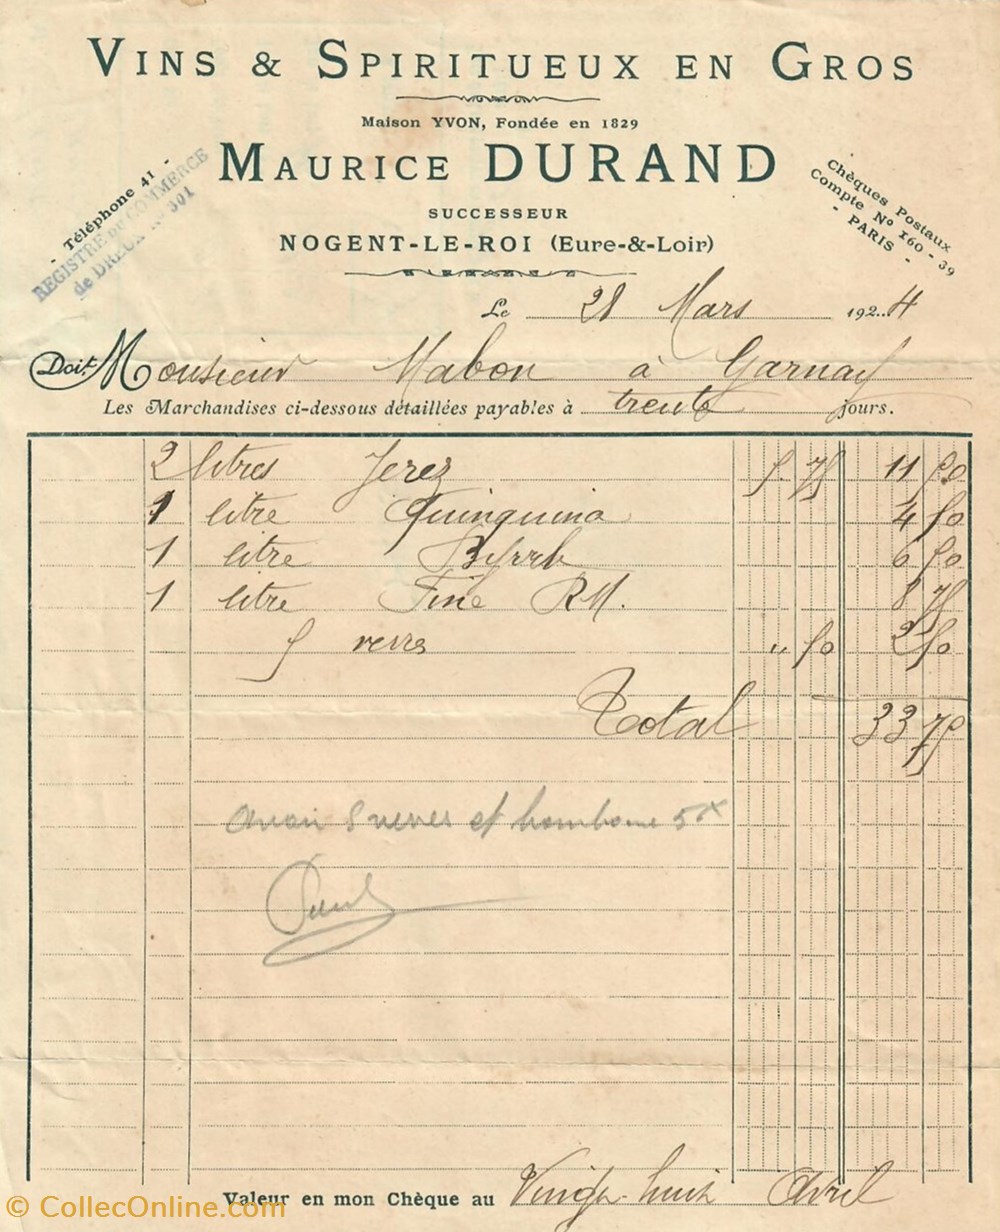 VINS & SPIRITUEUX EN GROS
Maison YVON, Fondée en 1829
MAURICE DURAND
SUCCESSEUR
NOGENT-LE-ROI (Eure-&-Loir)
- Téléphone 41 -
REGISTRE DU COMMERCE
de DREUX N° 301
Chèques Postaux
Compte N° 160-39
- PARIS -
Le 28 Mars 1924
Doit Monsieur Mabon à Garnay
Les Marchandises ci-dessous détaillées payables à trente jours.
2 litres Jerez 5.75 11 50
1 litre Quinquina 4 50
1 litre Byrrh 6 50
1 litre Fine RM. 8 75
5 verres " 50 2 50
Total 33 75
verres et
Valeur en mon Chèque au Vingt-huit Avril
© CollecOnline.com